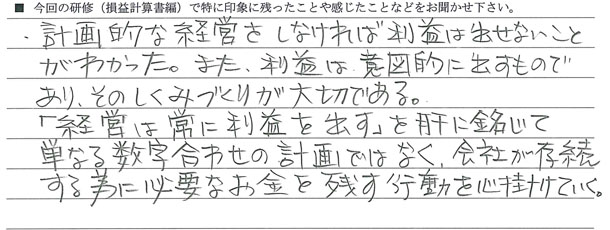 ■ 今回の研修（損益計算書編）で特に印象に残ったことや感じたことなどをお聞かせ下さい。
・計画的な経営をしなければ利益は出せないこと
がわかった。また、利益は意図的に出すもので
あり、そのしくみづくりが大切である。
「経営は常に利益を出す」を肝に銘じて
単なる数字合わせの計画ではなく、会社が存続
する為に必要なお金を残す行動を心掛けていく。